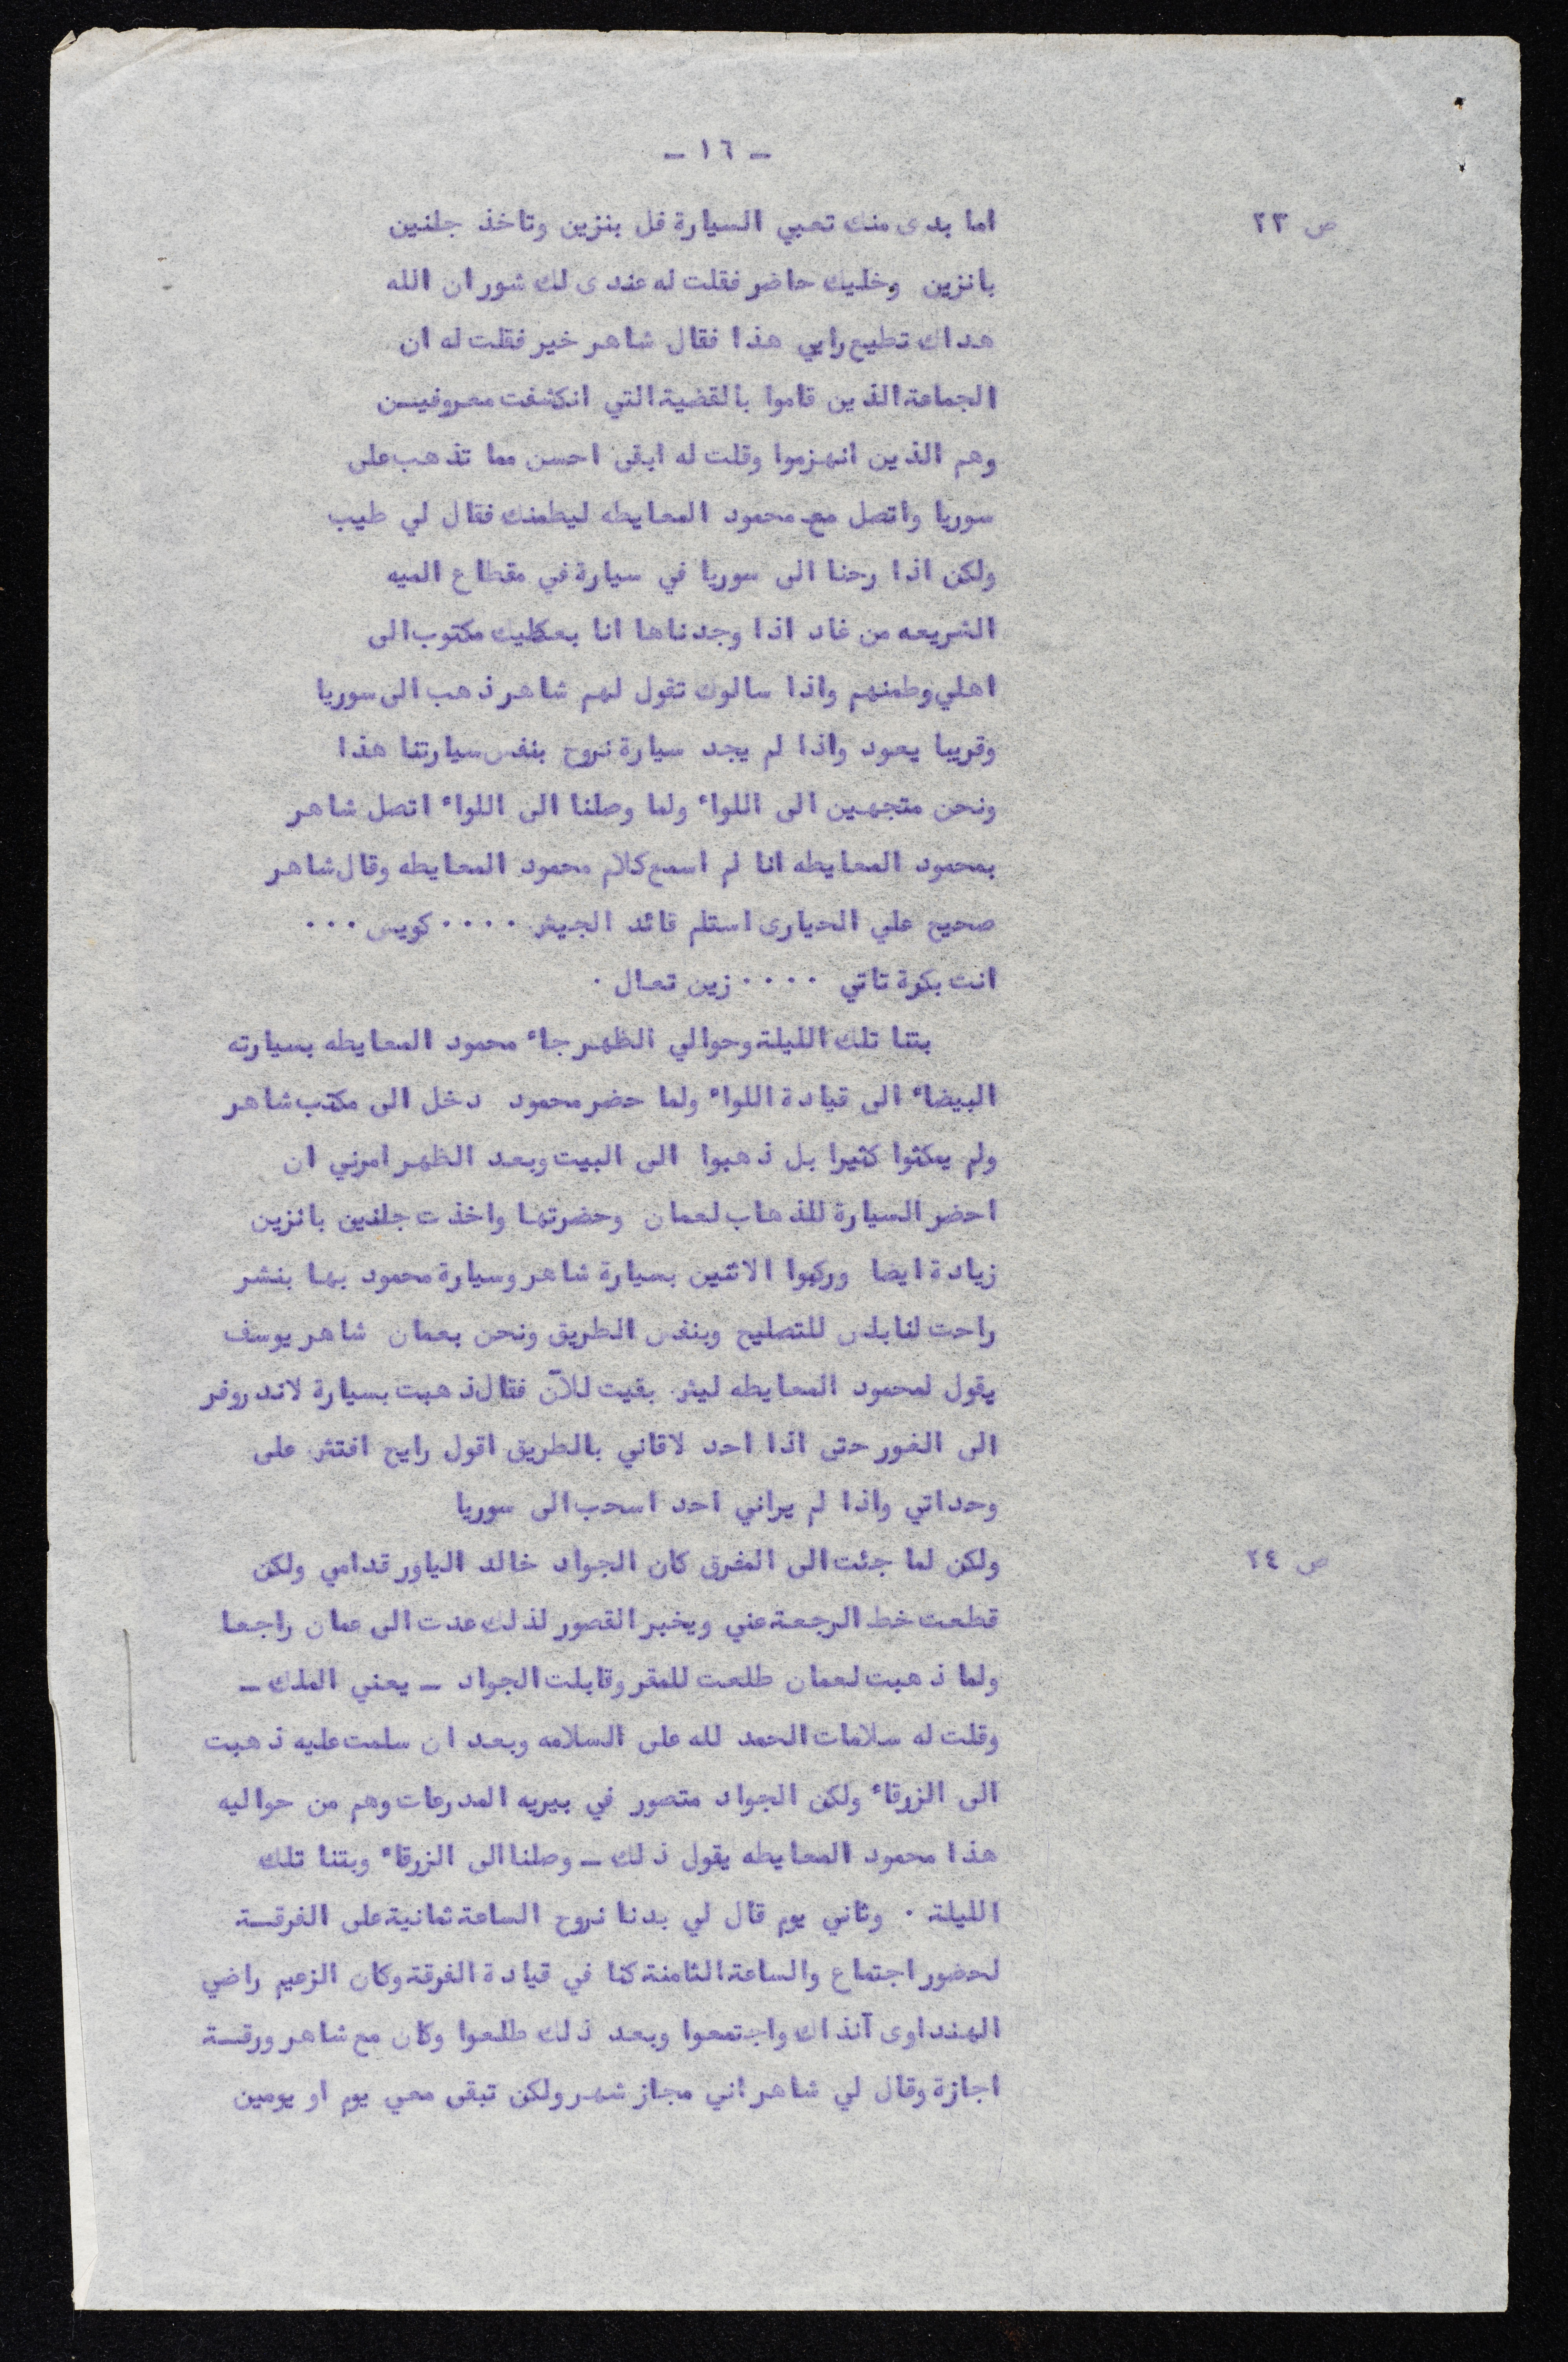 - ١٦ -
ص ٢٣
اما بدى منك تعبي السيارة فل بنزين وتاخذ جلنين
بانزين وخليك حاضر فقلت له عندى لك شور ان الله
هداك تطيع رايي هذا فقال شاهر خير فقلت له ان
الجماعة الذين قاموا بالقضية التي انكشفت معروفيـن
وهم الذين انهزموا وقلت له ابقى احسن مما تذهب على
سوريا واتصل مع محمود المعايطه ليطمنك فقال لي طيب
ولكن اذا رحنا الى سوريا في سيارة في مقطاع الميه
الشريعه من غاد اذا وجدناها انا بعطيك مكتوب الى
اهلي وطمنهم واذا سالوك تقول لهم شاهر ذهب الى سوريا
وقريبا يعود واذا لم يجد سيارة نروح بنفس سيارتنا هذا
ونحن متجهين الى اللواء ولما وصلنا الى اللواء اتصل شاهر
بمحمود المعايطه انا لم اسمع كلام محمود المعايطه وقال شاهر
صحيح علي الحيارى استلم قائد الجيش ٠٠٠٠ كويس ٠٠٠
انت بكرة تاتي ٠٠٠٠ زين تعال ٠
بتنا تلك الليلة وحوالي الظهر جاء محمود المعايطه بسيارته
البيضاء الى قيادة اللواء ولما حضر محمود دخل الى مكتب شاهر
ولم يمكثوا كثيرا بل ذهبوا الى البيت وبعد الظهر امرني ان
احضر السيارة للذهاب لعمان وحضرتها واخذت جلنين بانزين
زيادة ايضا وركبوا الاثنين بسيارة شاهر وسيارة محمود بها بنشر
راحت لنابلس للتصليح وبنفس الطريق ونحن بعمان شاهر يوسف
يقول لمحمود المعايطه ليش بقيت للآن فقال ذهبت بسيارة لاندروفر
الى الغور حتى اذا احد لاقاني بالطريق اقول رايح افتش على
وحداتي واذا لم يراني احد اسحب الى سوريا
ص ٢٤
ولكن لما جئت الى المفرق كان الجواد خالد الياور قدامي ولكن
قطعت خط الرجعة عني ويخبر القصور لذلك عدت الى عمان راجعا
ولما ذهبت لعمان طلعت للمقر وقابلت الجواد - يعني الملك -
وقلت له سلامات الحمد لله على السلامه وبعد ان سلمت عليه ذهبت
الى الزرقاء ولكن الجواد متصور في بيريه المدرعات وهم من حواليه
هذا محمود المعايطه يقول ذلك - وصلنا الى الزرقاء وبتنا تلك
الليلة ٠ وثاني يوم قال لي بدنا نروح الساعة ثمانية على الفرقـة
لحضور اجتماع والساعة الثامنة كنا في قيادة الفرقة وكان الزعيم راضي
الهنداوى آنذاك واجتمعوا وبعد ذلك طلعوا وكان مع شاهر ورقـة
اجازة وقال لي شاهر اني مجاز شهر ولكن تبقى معي يوم او يومين